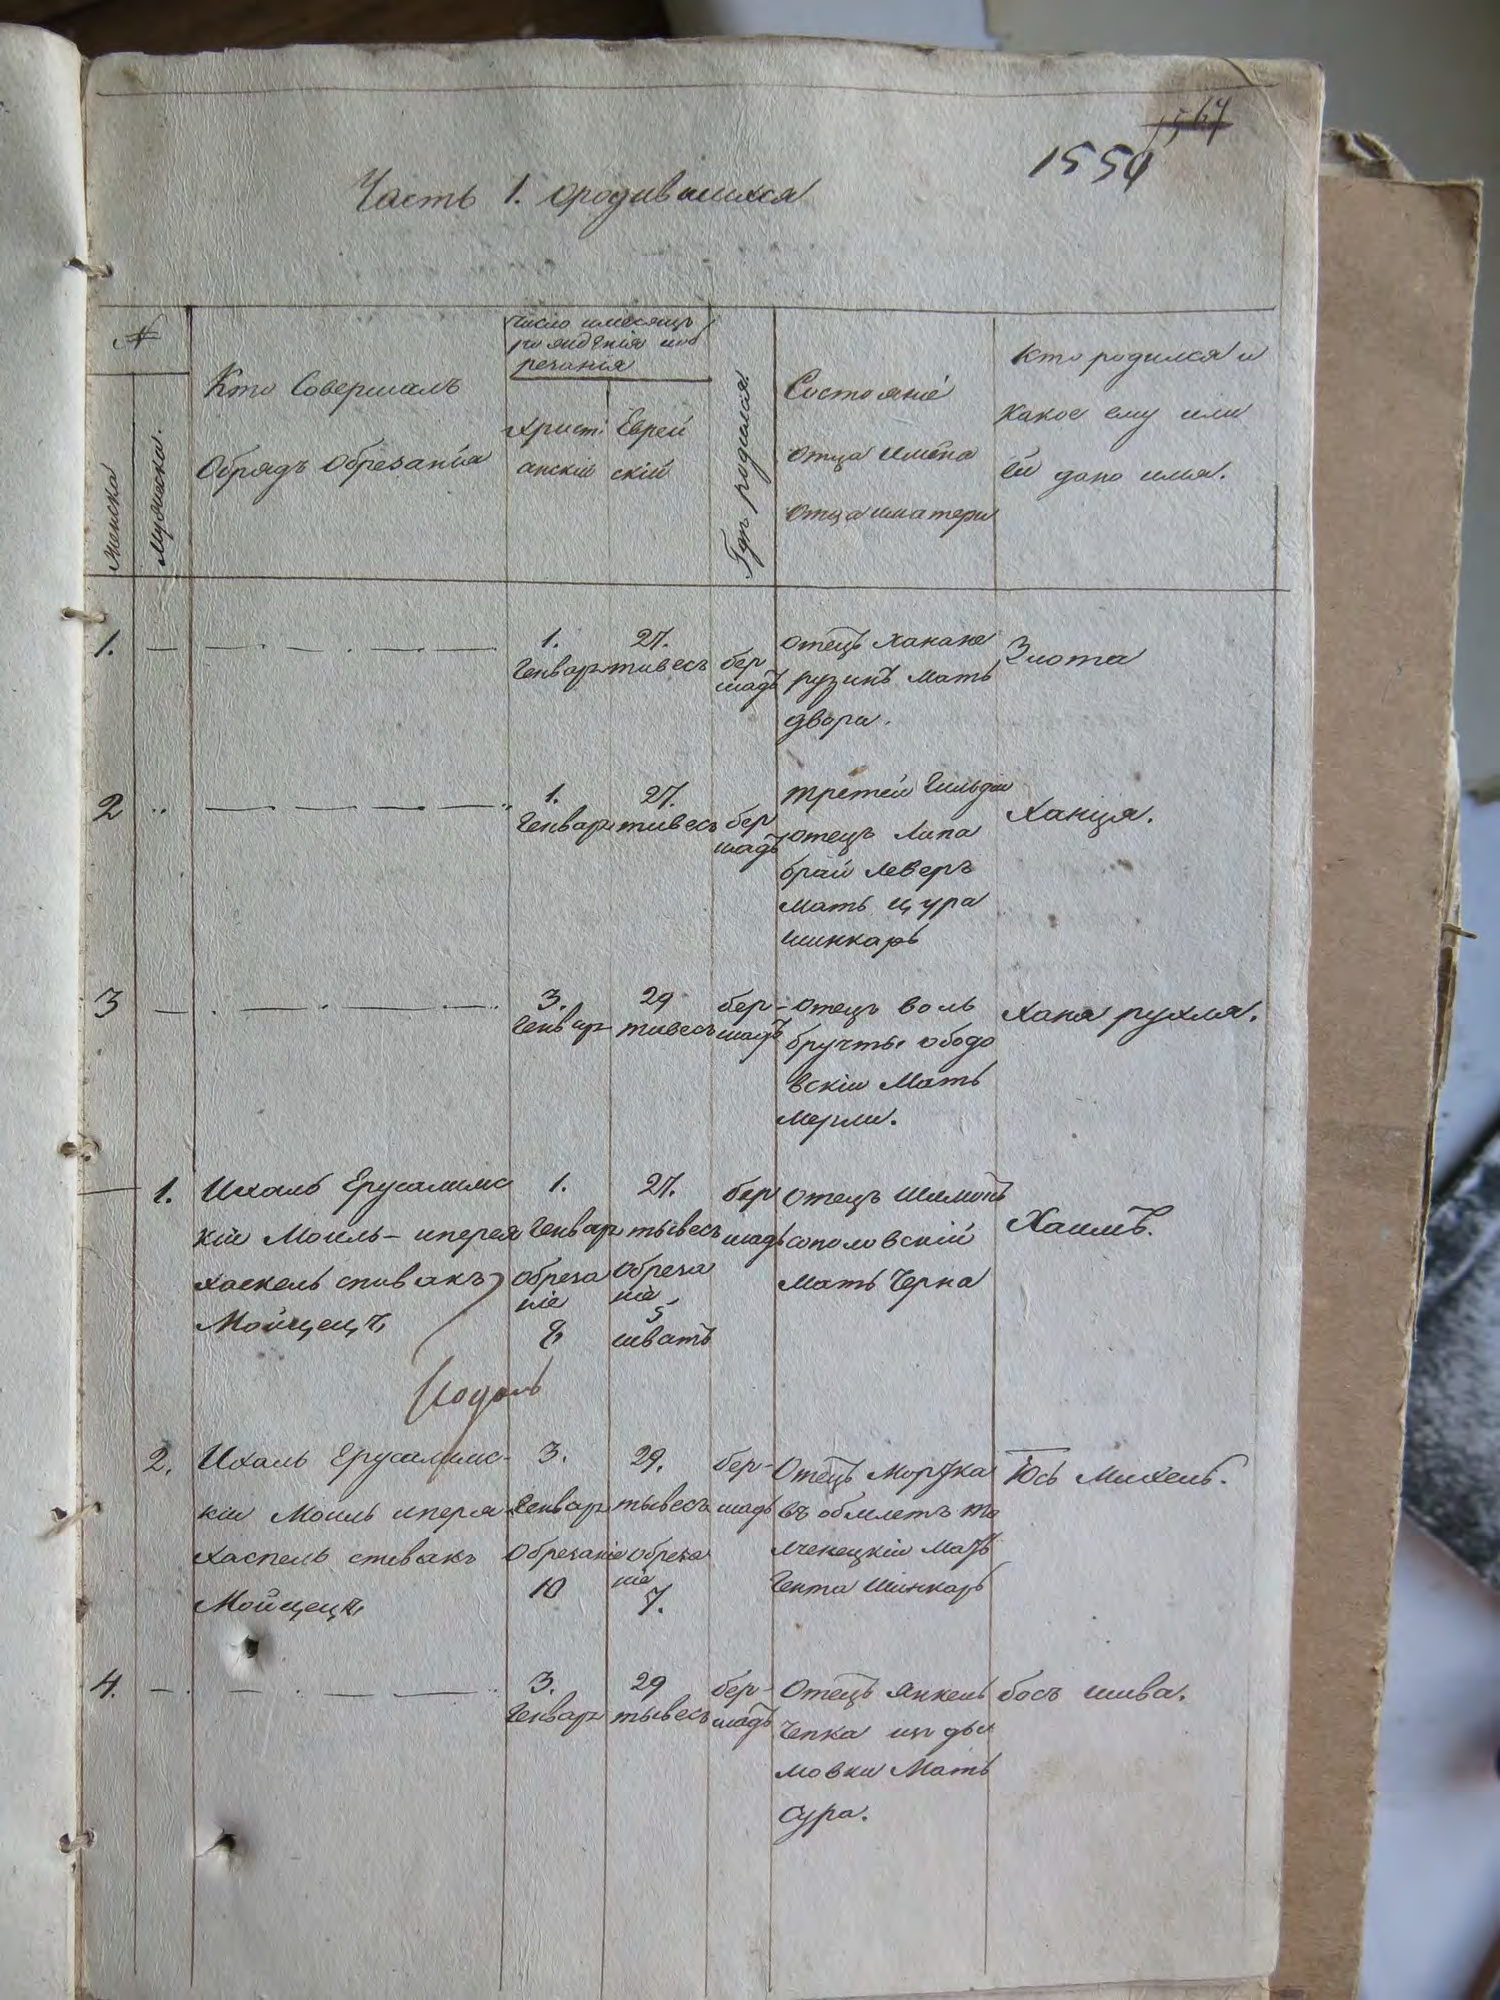 1567
1550
Часть 1. ородившихся
№
Женска
Мужеска.
Кто Совершалъ
Обрядъ Обрезанія
Число имесяцъ
рожденія иоб
резанія
Христі
анскій
Еврей
скій
Где родился
Состояніе
отца имена
отца иматери
Кто родился и
какое ему или
ей дано имя.
1.
1.
Генварь
27.
тивесъ
бер
шадъ
отецъ Ханане
рузинъ Мать
двора.
Злота
2
1.
Генварь
27.
тивесъ
бер
шадъ
третей гильдіи
отецъ Липа
брай леверъ
Мать цура
шинкарь
Ханця.
3
3.
Генвар
29
тивесъ
бер-
шадъ
отецъ воль
ободо
вскій Мать
мерли.
Хана рухля.
1.
Ихаль Ерусалимс
кій Моиль- иперея
хаскель спивакъ
Мойщецъ
1.
Генвар
обреза
ніе
8
27.
тывесъ
обреза
ніе
5
шватъ
бер
шадъ
отецъ Шимонъ
сополовскій
Мать Черна
Хаимъ.
2.
Ихаль Ерусалимс-
кій Моиль иперея
хаспель спивакъ
Мойщецъ
3.
Генвар
Обрезаніе
10
29.
тывесъ
обреза
ніе
7.
бер-
шадъ
Отецъ Мортка
мченецкій мать
Гента Шинкарь
Юсь Михель.
4.
3.
Генвар
29
тывесъ
бер-
шадъ
Отецъ янкель
Чепка изъ ды
мовки Мать
Сура.
бось шива.